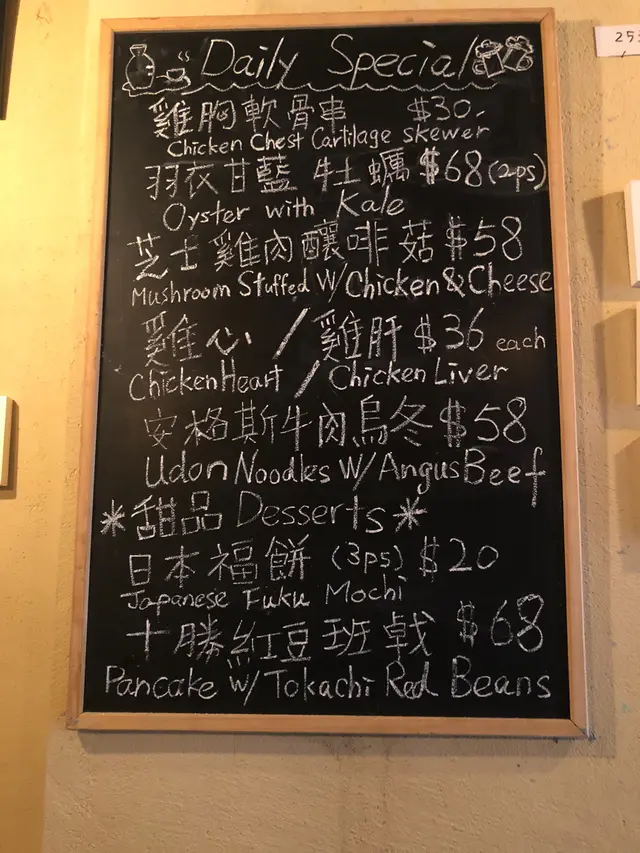 Daily Special
雞胸軟骨串 $30.
Chicken Chest Cartilage skewer
羽衣甘藍 牡蠣 $68 (2ps)
Oyster with Kale
芝士雞肉釀啡菇 $58
Mushroom Stuffed W/Chicken & Cheese
雞心 / 雞肝 $36 each
Chicken Heart / Chicken Liver
安格斯牛肉烏冬 $58
Udon Noodles W/ Angus Beef
*甜品 Desserts*
日本福餅 (3ps) $20
Japanese Fuku Mochi
十勝紅豆班戟 $68
Pancake w/ Tokachi Red Beans